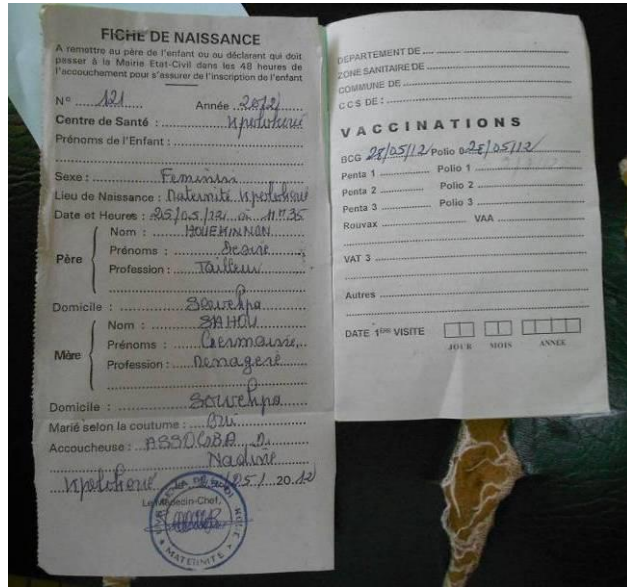 FICHE DE NAISSANCE
A remettre au père de l'enfant ou au déclarant qui doit
passer à la Mairie Etat-Civil dans les 48 heures de
l'accouchement pour s'assurer de l'inscription de l'enfant
N° 121 Année 2012
Centre de Santé : Kpolokoué
Prénoms de l'Enfant :
Sexe : Feminin
Lieu de Naissance : Maternité
Date et Heures : 25/05/12 à 11H35
Père
Nom : HOUEKINNON
Prénoms : Desiré
Profession : Tailleur
Domicile :
Mère
Nom : SAHOU
Prénoms : Germaine
Profession : Menagère
Domicile :
Marié selon la coutume : Oui
Accoucheuse : ASSOGBA N.
Nadine
25/05/ 2012
Le Médecin-Chef,
MATERNITE
DEPARTEMENT DE
ZONE SANITAIRE DE
COMMUNE DE
C C S DE :
VACCINATIONS
BCG 28/05/12 Polio 0 28/05/12
Penta 1 Polio 1
Penta 2 Polio 2
Penta 3 Polio 3
Rouvax VAA
VAT 3
Autres
DATE 1ERE VISITE
JOUR MOIS ANNEE